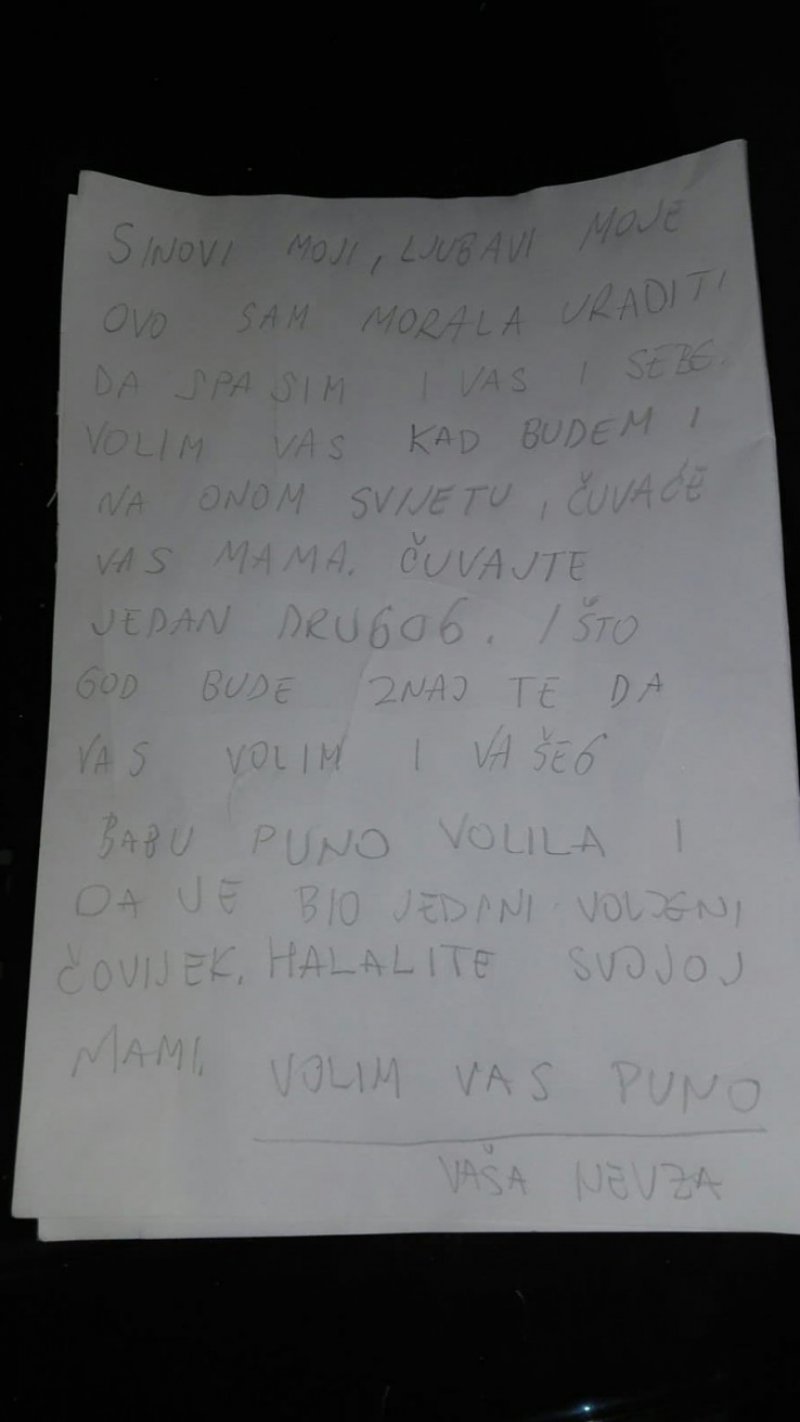 SINOVI MOJI, LJUBAVI MOJE
OVO SAM MORALA URADITI
DA SPASIM I VAS I SEBE.
VOLIM VAS KAD BUDEM I
NA ONOM SVIJETU, ČUVAĆE
VAS MAMA. ČUVAJTE
JEDAN DRUGOG. I ŠTO
GOD BUDE ZNAJ TE DA
VAS VOLIM I VAŠEG
BABU PUNO VOLILA I
DA JE BIO JEDINI VOLJENI
ČOVIJEK. HALALITE SVOJOJ
MAMI.
VOLIM VAS PUNO
VAŠA NEVZA